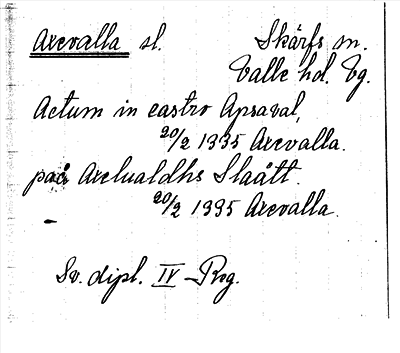 Axevalla sl. Skärfs sn.
Valle hd. Vg.
Actum in castro Apsaval,
20/2 1335 Axevalla.
paa Axelualdhs Slaått.
20/2 1335 Axevalla.
Sv. dipl. IV Reg.